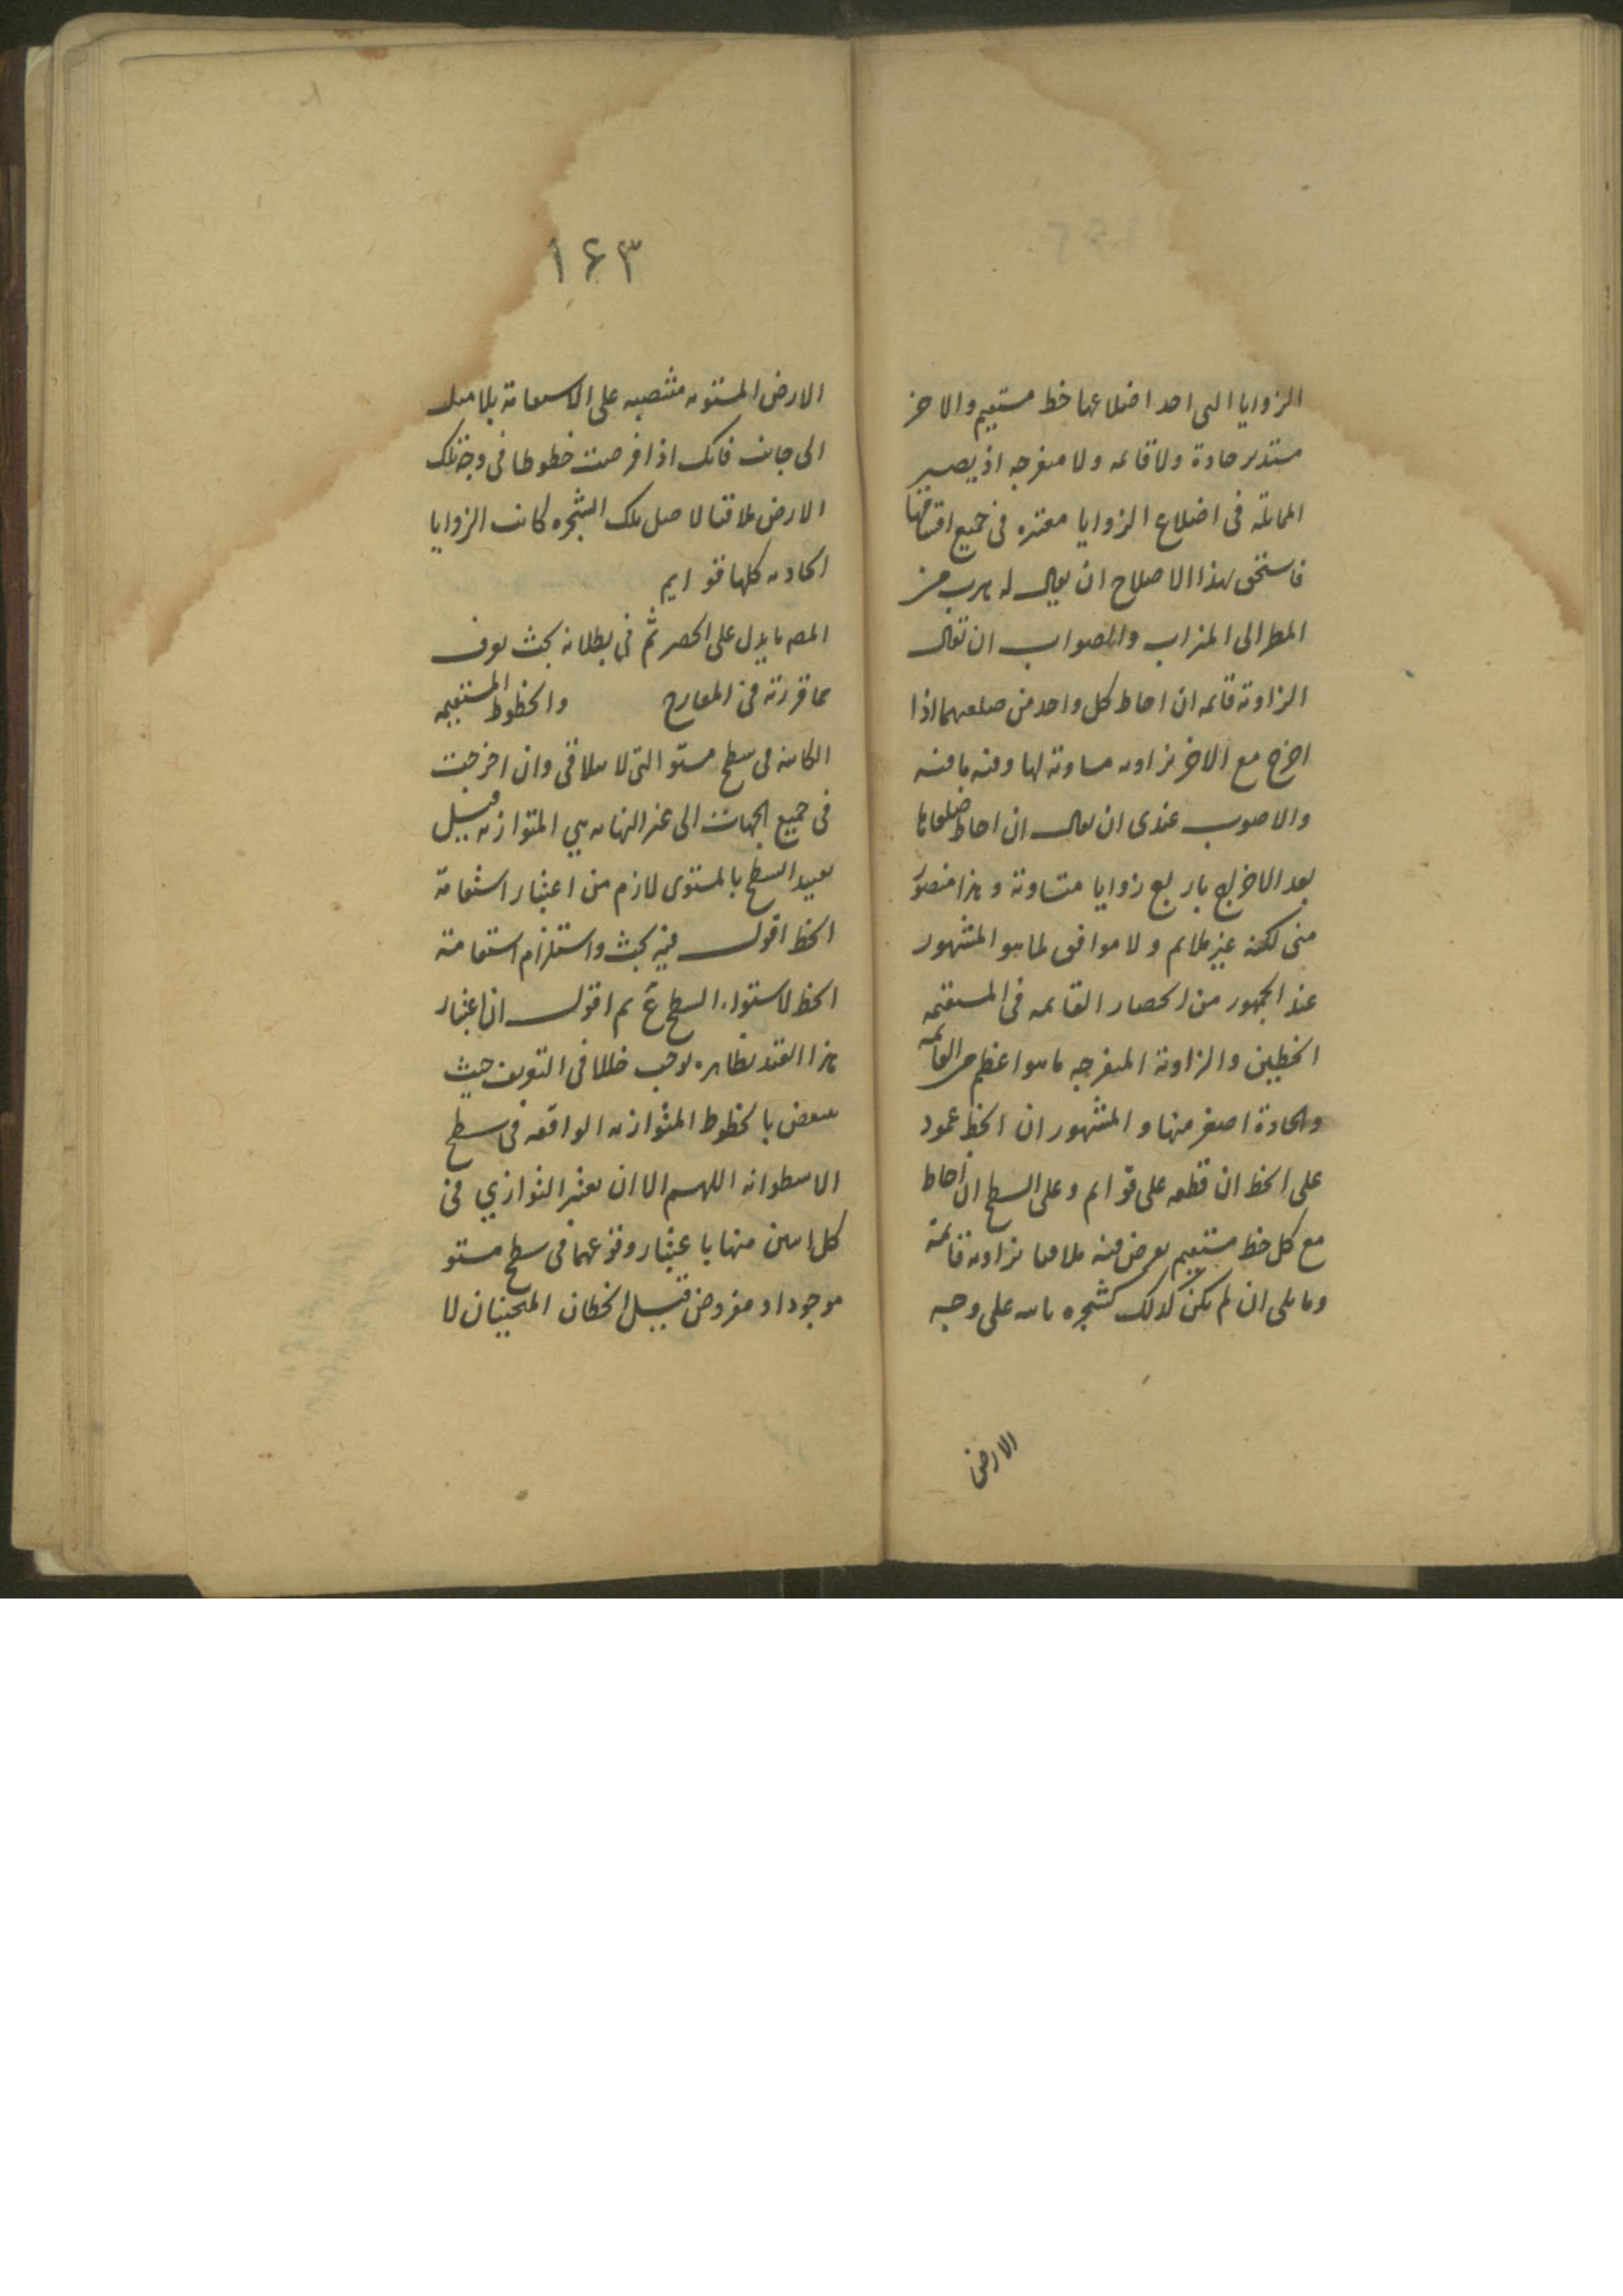 الزوايا التى احد اضلاعها خط مستقيم والاخر
مستدير حادة ولا قائمه ولا منفرجه اذ يصير
المماثلة فى اضلاع الزوايا معتبره فى جميع اقسامها
فاستحق بهذا الاصلاح ان يقال له هرب من
المطر الى الميزاب والصواب ان يقال
الزاوية قائمه ان احاط كل واحد من ضلعيها اذا
اخرج مع الاخر بزاويه مساوية لها وفيه ما فيه
والاصوب عندى ان يقال ان احاط ضلعاها
بعد الاخراج باربع زوايا متساوية وهذا متصور
منى لكنه غير ملايم ولا موافق لما هو المشهور
عند الجمهور من انحصار القايمه فى المستقيمه
الخطين والزاوية المنفرجه ما هو اعظم من القائمه
والحادة اصغر منها والمشهور ان الخط عمود
على الخط ان قطعه على قوايم وعلى السطح ان احاط
مع كل خط مستقيم يفرض فيه ملاقيا بزاويه قائمة
ومايلى ان لم يكن كذلك كشجره على وجه
الارض
١٦٣
الارض المستويه منتصبه على الاستقامة بلا ميل
الى جانب فانك اذا فرضت خطوطا فى وجه تلك
الارض ملاقيا لاصل تلك الشجره كانت الزوايا
الحاديه كلها قوايم
المصـ ما يدل على الحصر ثم فى بطلانه بحث يعرف
مما قررته فى المعارج والخطوط المستقيمه
الكاينه فى سطح مستو التى لا يتلاقى وان اخرجت
فى جميع الجهات الى غير النهايه هي المتوازيه قيل
تقييد السطح بالمستوى لازم من اعتبار استقامة
الخط اقول فيه بحث واستلزام استقامة
الخط لاستواء السطح ثم اقول ان اعتبار
هذا القيد بظاهره يوجب خللا فى التعريف حيث
ينتقض بالخطوط المتوازيه الواقعه فى سطح
الاسطوانه اللهم الا ان يعتبر التوازي فى
كل اثنين منها باعتبار وقوعهما فى سطح مستو
موجود او مفروض قيل الخطان المنحنيان لا